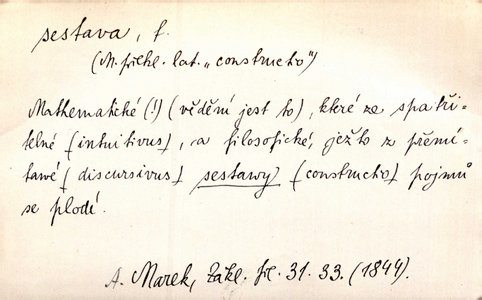 sestava, f.
(N. překl. lat. „constructio")
Mathematické (!) (vědění jest to), které ze spatři-
telné [intuitivus], a filosofické, ježto z přemí-
tawé [discursivus] sestawy [constructio] pojmů
se plodí.
A. Marek, Zákl. fil. 31. 33. (1844).